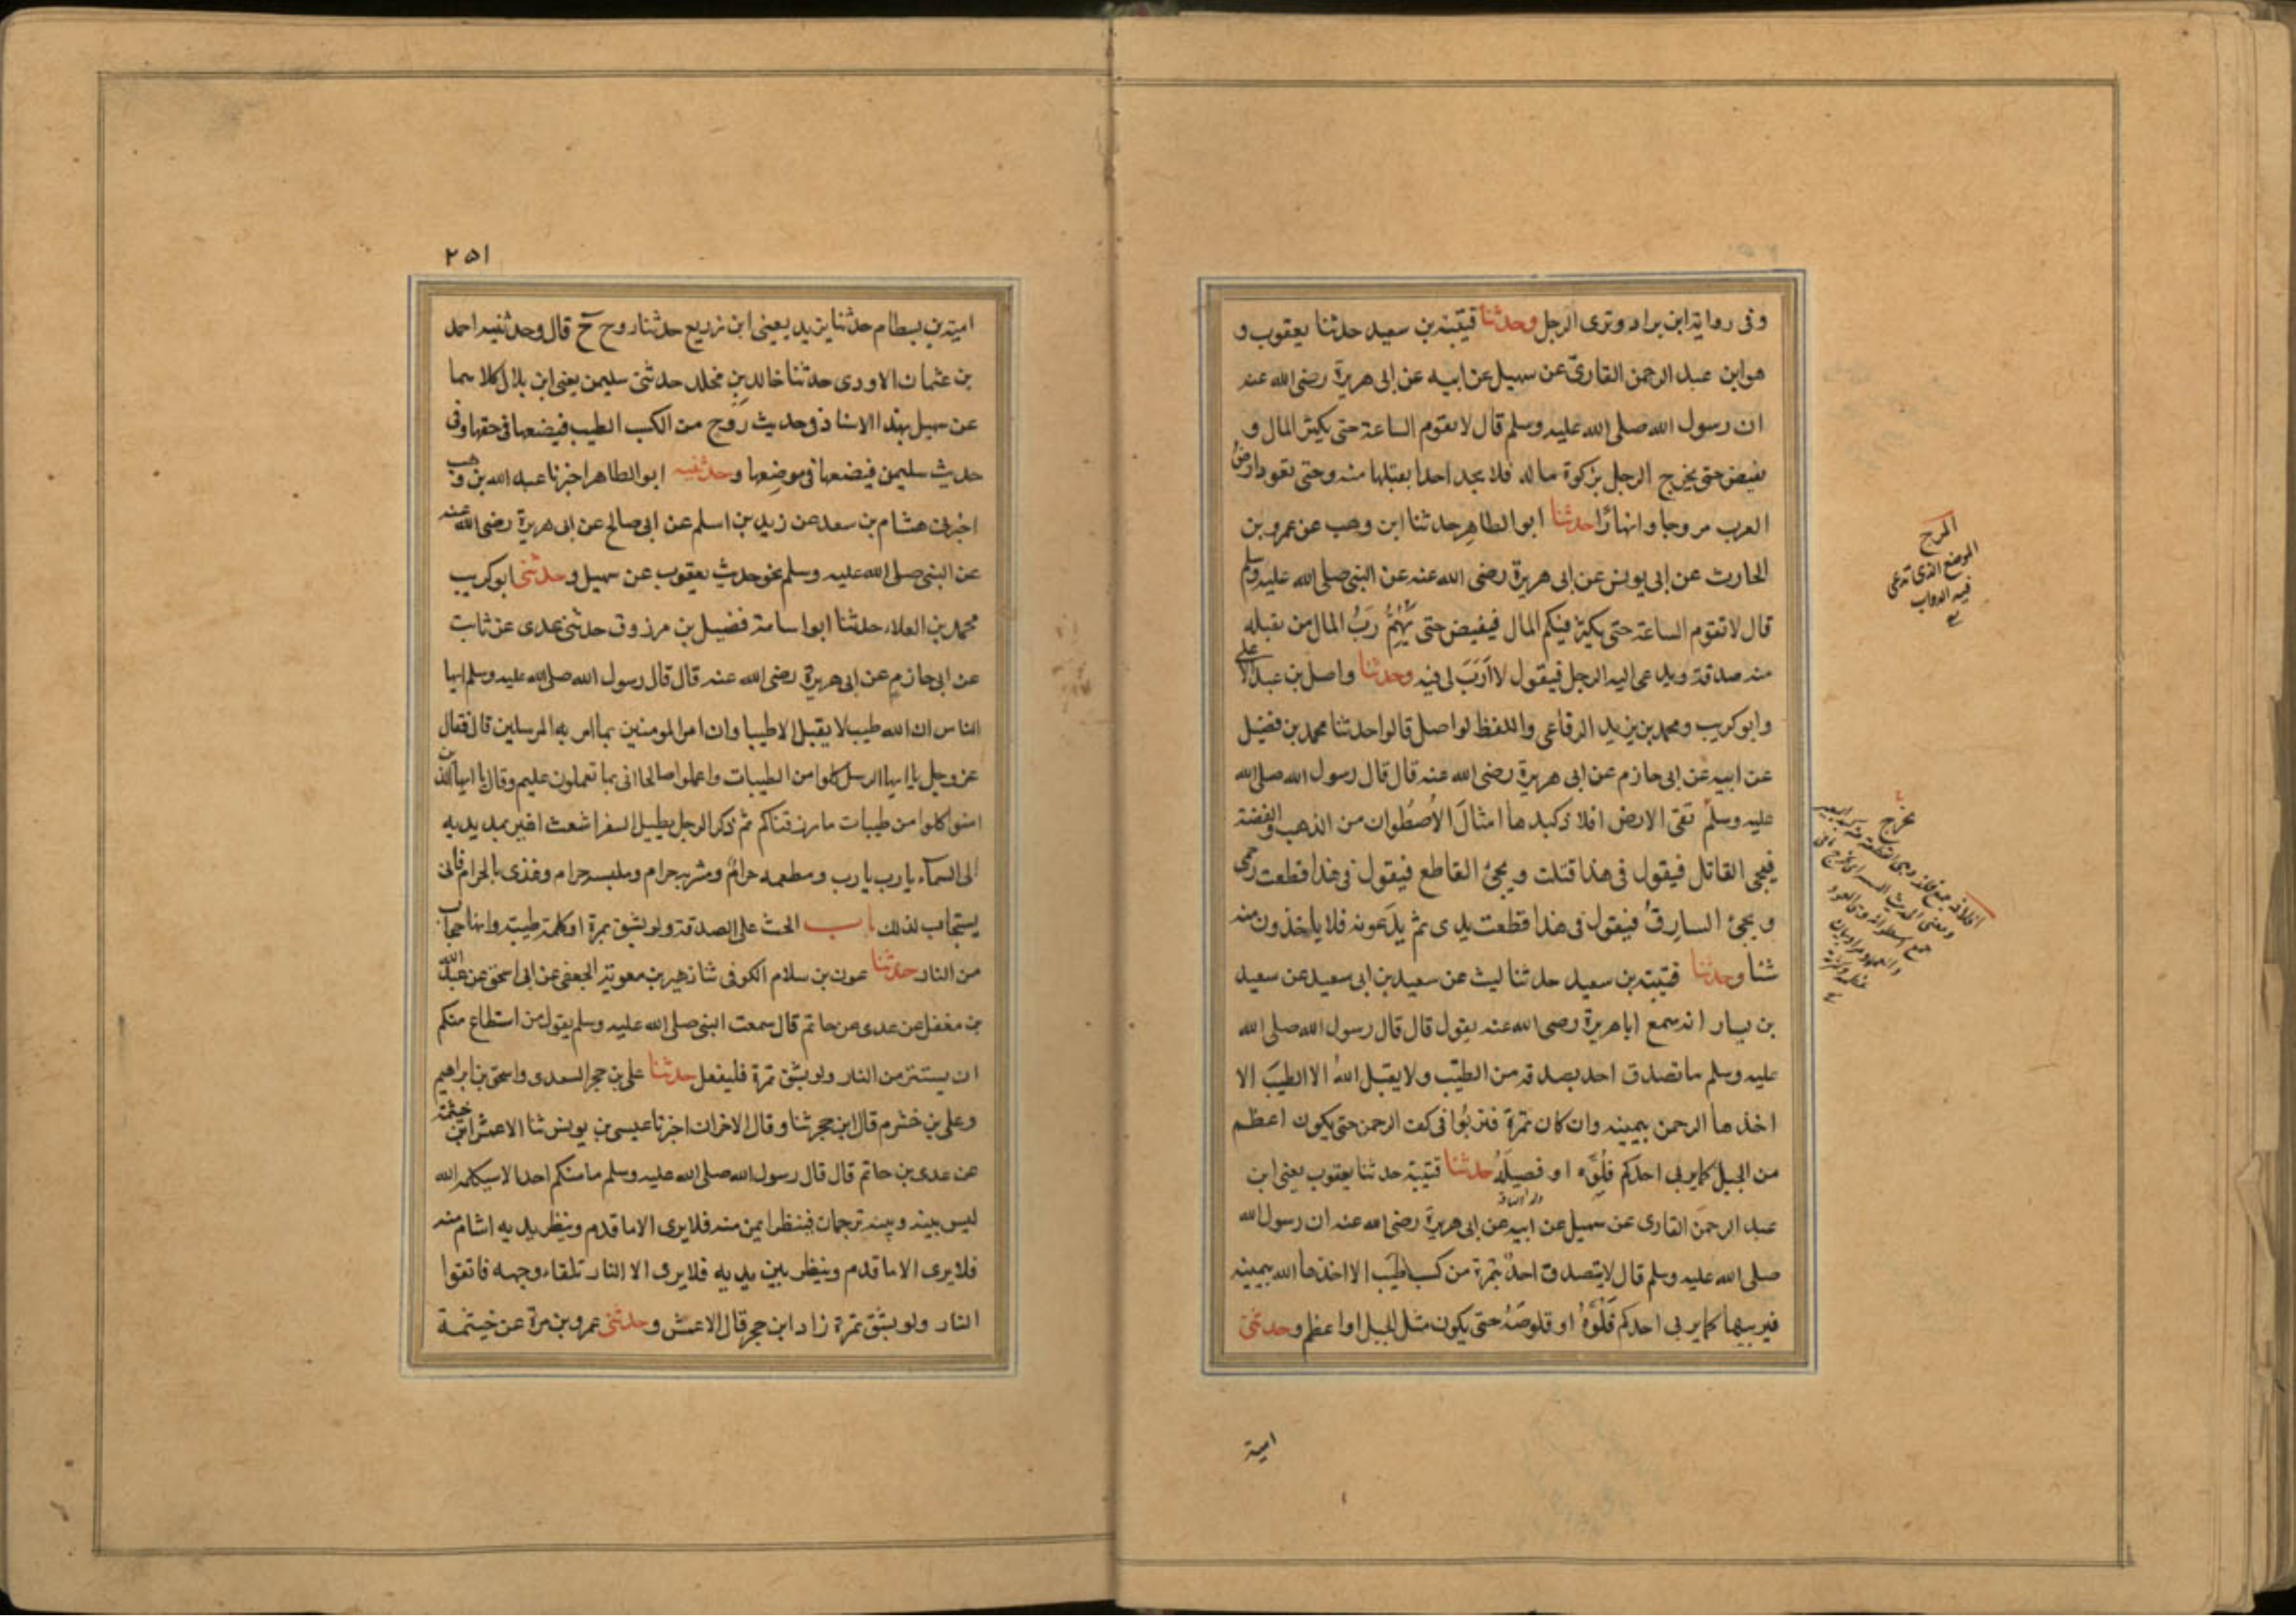 وفى رواية ابن براد وترى الرجل وحدثنا قتيبة بن سعيد حدثنا يعقوب و
هو ابن عبد الرحمن القارىّ عن سهيل عن ابيه عن ابى هريرة رضى الله عنه
ان رسول الله صلى الله عليه وسلم قال لا تقوم الساعة حتى يكثر المال و
يفيض حتى يخرج الرجل بزكوة ماله فلا يجد احدا يقبلها منه وحتى تعود ارض
العرب مروجا وانهارًا حدثنا ابو الطاهر حدثنا ابن وهب عن عمرو بن
الحارث عن ابى يونس عن ابى هريرة رضى الله عنه عن النبى صلى الله عليه وسلم
قال لا تقوم الساعة حتى يكثر فيكم المال فيفيض حتى يُهِمُّ رَبُّ المال من يقبله
منه صدقة ويدعى اليه الرجل فيقول لا اَرَبَ لى فيه وحدثنا واصل بن عبد الاعلى
وابو كريب ومحمد بن يزيد الرفاعى واللفظ لواصل قالوا حدثنا محمد بن فضيل
عن ابيه عن ابى حازم عن ابى هريرة رضى الله عنه قال قال رسول الله صلى الله
عليه وسلم تقى الارض افلاذ كبدها امثالَ الاُصطُوان من الذهب والفضة
فيجى القاتل فيقول فى هذا قتلت ويجئ القاطع فيقول فى هذا قطعت رحمى
ويجئ السارقُ فيقول فى هذا قطعت يدى ثم يدَعونه فلا ياخذون منه
شئا وحدثنا قتيبة بن سعيد حدثنا ليث عن سعيد بن ابى سعيد عن سعيد
بن يسار انه سمع ابا هريرة رضى الله عنه يقول قال قال رسول الله صلى الله
عليه وسلم ما تصدق احد بصدقة من الطيّب ولا يقبل اللهُ الا الطيبَ الا
اخذها الرحمن بيمينه وان كان تمرة فتربُوا فى كف الرحمن حتى يكون اعظم
من الجبل كما يربى احدكم فُلُوَّه او فصيلَهُ حدثنا قتيبة حدثنا يعقوب يعنى ابن
ولد الناقة
عبد الرحمن القارى عن سهيل عن ابيه عن ابى هريرة رضى الله عنه ان رسول الله
صلى الله عليه وسلم قال لا يتصدق احدٌ بتمرة من كسب طيّب الا اخذها الله بيمينه
فيربيها كما يربى احدكم فَلُوَّهُ او قلوصَهُ حتى يكون مثل الجبل او اعظم وحدثنى
المرج
الموضع الذى ترعى
فيه الدواب
امية
٢٥١
امية بن بسطام حدثنا يزيد يعنى ابن زريع حدثنا روح ح قال وحدثنيه احمد
بن عثمان الاودى حدثنا خالد بن مخلد حدثنى سليمن يعنى ابن بلال كلاهما
عن سهيل بهذا الاسناد فى حديث روح من الكسب الطيب فيضعها فى حقها وفى
حديث سليمن فيضعها فى موضعها وحدثنيه ابو الطاهر اخبرنا عبد الله بن وهب
اخبرنى هشام بن سعد عن زيد بن اسلم عن ابى صالح عن ابى هريرة رضى الله عنه
عن النبى صلى الله عليه وسلم نحو حديث يعقوب عن سهيل وحدثنى ابو كريب
محمد بن العلاء حدثنا ابو اسامة فضيل بن مرزوق حدثنى عدى عن ثابت
عن ابى حازم عن ابى هريرة رضى الله عنه قال قال رسول الله صلى الله عليه وسلم ايها
الناس ان الله طيب لا يقبل الا طيبا وان امر المومنين بما امر به المرسلين قال فقال
عز وجل يا ايها الرسل كلوا من الطيبات واعملوا صالحا انى بما تعملون عليم وقال يا ايها الذين
امنوا كلوا من طيبات ما رزقناكم ثم ذكر الرجل يطيل السفر اشعث اغبر يمد يديه
الى السمآء يا رب يا رب ومطعمه حرامٌ ومشربه حرام وملبسه حرام وغذى بالحرام فانى
يستجاب لذلك باب الحث على الصدقة ولو بشق تمرة او كلمة طيبة وانها حجاب
من النار حدثنا عون بن سلام الكوفى ثنا زهير بن معوية الجعفى عن ابى اسحق عن عبد الله
بن مغفل عن عدى بن حاتم قال سمعت النبى صلى الله عليه وسلم يقول من استطاع منكم
ان يستتر من النار ولو بشق تمرة فليفعل حدثنا على بن حجر السعدى واسحق بن ابراهيم
وعلى بن خشرم قال ابن حجر ثنا وقال الاخران اخبرنا عيسى بن يونس ثنا الاعمش خيثمة
عن عدى بن حاتم قال قال رسول الله صلى الله عليه وسلم ما منكم احد الا سيكلمه الله
ليس بينه وبينه ترجمان فينظر ايمن منه فلا يرى الا ما قدم وينظر اشام منه
فلا يرى الا ما قدم وينظر بين يديه فلا يرى الا النار تلقاء وجهه فاتقوا
النار ولو بشق تمرة زاد ابن حجر قال الاعمش وحدثنى عمرو بن مرة عن خيثمة